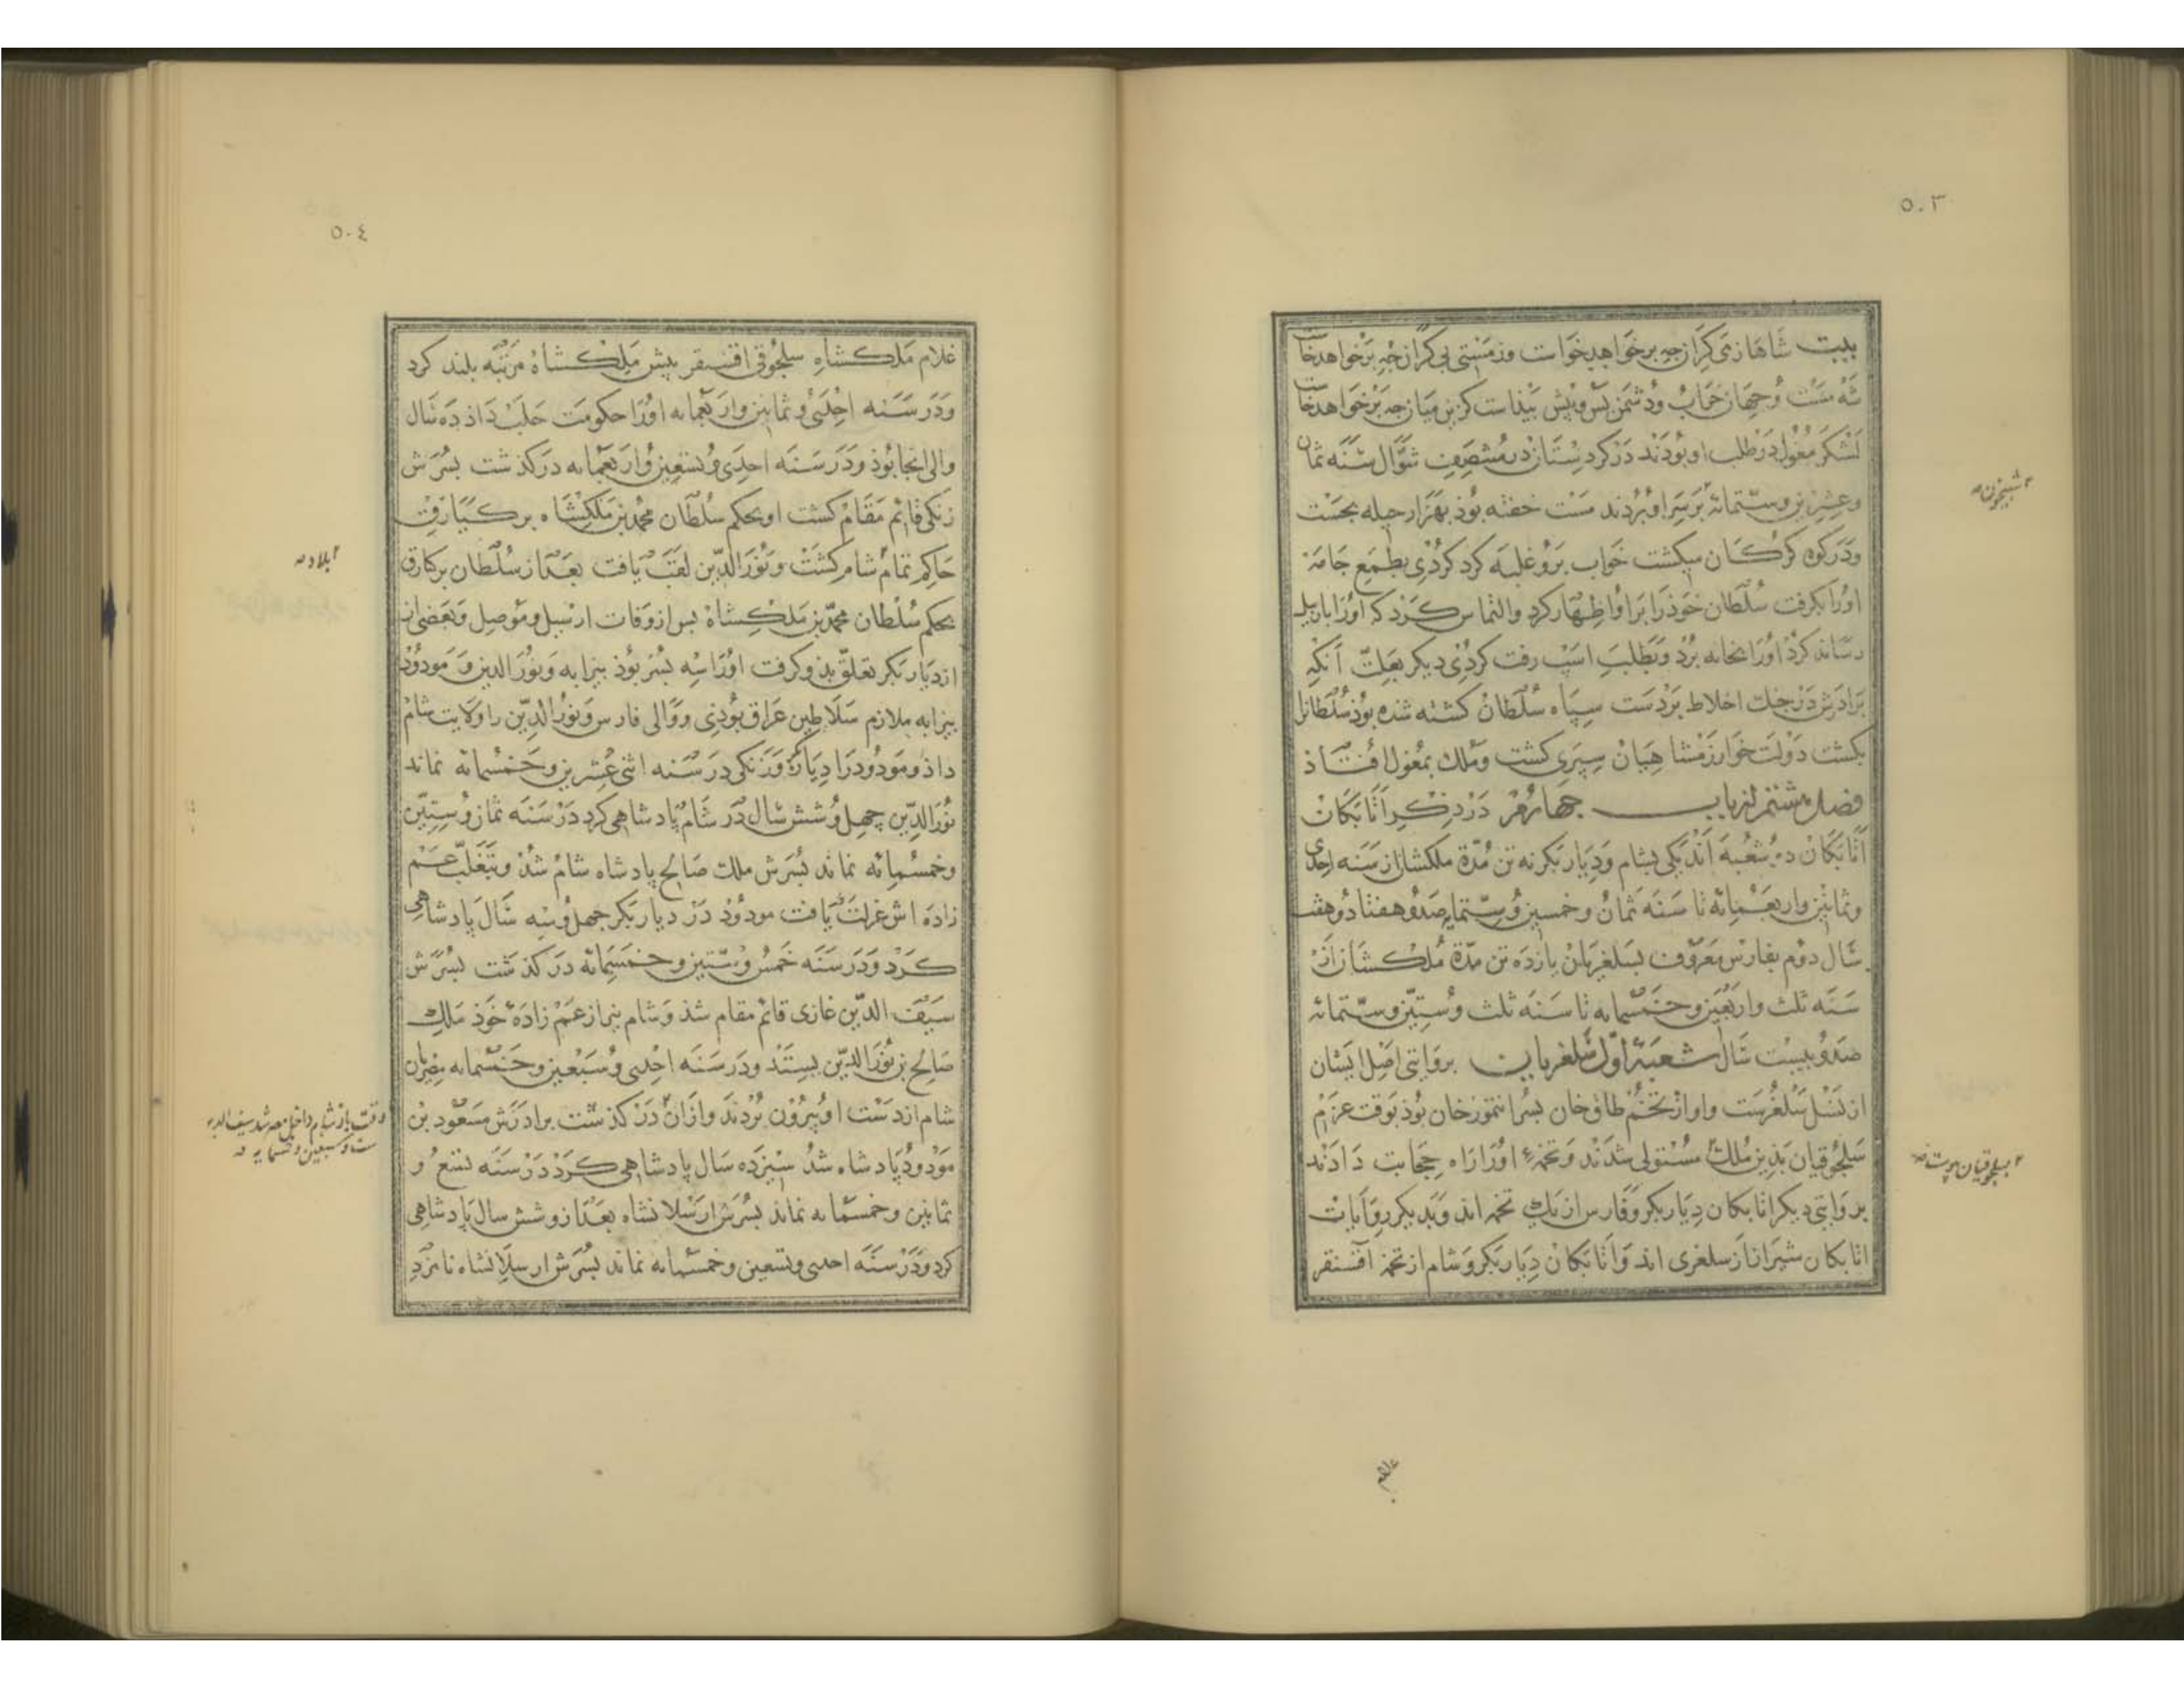 ٥٠٣
بیت شاها ز می کران چه بر خواهد خواست وز مستی بی کران چه بر خواهد خاست
شه مست و جهان خراب و دشمن پس و پیش پیداست کزین میان چه بر خواهد خاست
لشکر مغول در طلب او بودند در کردستان در منتصف شوال سنه ثمان
وعشرین وستمائه بر سر او بردند مست خفته بوذ بهزار حیله بجست
ودر کوه کردکان میکشت خواب برو غلبه کرد کردی بطمع جامه
اورا بکرفت سلطان خوذ را برا و اظهار کرد والتماس کرد که اورا باربیل
رساند کرد اورا بخانه برد وبطلب اسپ رفت کردی دیکر بعلت آنکه
برادرش در جنک اخلاط بر دست سپاه سلطان کشته شده بوذ سلطانرا
بکشت دولت خوارزمشاهیان سپری کشت وملک بمغول افتاذ
فصل هشتم از باب جهارم در ذکر اتابکان
اتابکان دو شعبه اند یکی بشام ودیار بکر نه تن مدة ملکشان از سنه احدی
وثمانین واربعمائه تا سنه ثمان وخمسین وستمایه صد و هفتاد و هفت
سال دوم بفارس معروف بسلغریان یازده تن مدة ملکشان از
سنه ثلث واربعین وخمسمایه تا سنه ثلث وستین وستمائه
صد و بیست سال شعبه اول سلغریان بروایتی اصل ایشان
از نسل سلغرست واو از تخم طاق خان پسر انتمور خان بوذ بوقت عزم
سلجوقیان بذین ملک مستولی شدند وتخمۀ اورا راه حجابت دادند
بروایتی دیکر اتابکان دیار بکر وفارس از یک تخمه اند وبدیکر روآیات
اتابکان شیراز از سلغری اند واتابکان دیار بکر وشام از تخمه آقسنقر
شبیخون
سلجوقیان پیوست
غلام
٥٠٤
غلام ملکشاه سلجوقی اقسنقر پیش ملکشاه مرتبه بلند کرد
ودر سنه احدی وثمانین واربعمایه اورا حکومت حلب داذ ده سال
والی انجا بوذ ودر سنه احدی وتسعین واربعمایه در کذشت پسرش
زنکی قائم مقام کشت او بحکم سلطان محمد بن ملکشاه برکیارق
حاکم تمام شام کشت ونور الدین لقب یافت بعد از سلطان برکیارق
بحکم سلطان محمد بن ملکشاه پس از وفات اربیل وموصل وبعضی از
از دیار بکر تعلق بذو کرفت اورا سه پسر بوذ بیرابه ونور الدین ومودود
بیرابه ملازم سلاطین عراق بوذی ووالی فارس ونور الدین را ولایت شام
داذ ومودود را دیار بکر وزنکی در سنه اثنی عشرین وخمسمائه نماند
نور الدین چهل وشش سال در شام پادشاهی کرد در سنه ثمان وستین
وخمسمائه نماند پسرش ملک صالح پادشاه شام شد وبتغلب عم
زاده اش عزلت یافت مودود در دیار بکر جهل وسه سال پادشاهی
کرد ودر سنه خمس وستین وخمسمائه در کذشت پسرش
سیف الدین غازی قائم مقام شذ وشام نیز از عم زاده خوذ ملک
صالح بن نور الدین بستند ودر سنه احدی وسبعین وخمسمایه مصریان
شام از دست او بیرون بردند واز آن در کذشت برادرش مسعود بن
مودود پادشاه شد سیزده سال پادشاهی کرد در سنه تسع و
ثمانین وخمسمایه نماند پسرش ارسلانشاه بعد ازو شش سال پادشاهی
کرد ودر سنه احدی وتسعین وخمسمایه نماند پسرش ارسلانشاه نامزد
بلاد
وقت باز شام داخل مصر شد سیف الدین
ست وسبعین وخمسمایه